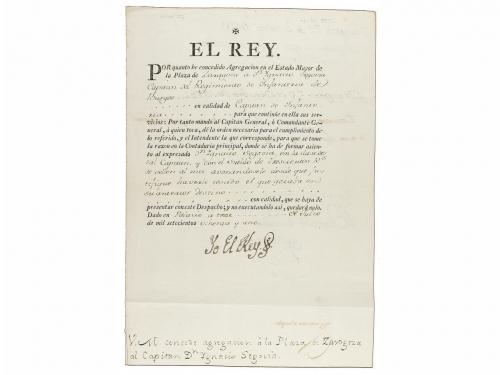 EL REY.
POR quanto he concedido Agregacion en el Estado Mayor de
la Plaza de Zaragoza a Dn. Ignacio Segovia
Capitan del Regimiento de Infanteria de
Burgos
en calidad de Capitan de Infante
ria para que continúe en ella sus ser-
vicios: Por tanto mando al Capitan General, ò Comandante Ge-
neral, à quien toca, dè la orden necesaria para el cumplimiento de
lo referido, y el Intendente la que corresponde, para que se tome
la razon en la Contaduría principal, donde se ha de formar asien-
to al expresado Dn. Ignacio Segovia, en la clase de
tal Capitan, y con el sueldo de
de vellon al mes
con calidad, que se haya de
presentar con este Despacho; y no executandolo así, quedará nulo.
Dado en Palacio a trece de Julio
de mil setecientos ochenta y uno.
Yo El Rey
V. M. concede agregacion à la Plaza de Zaragoza
al Capitan Dn. Ignacio Segovia.